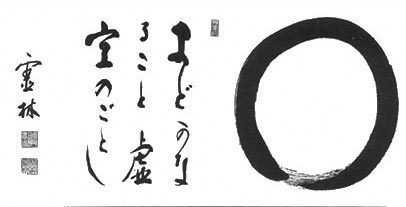 まどかな
ること虚
空のごとし
霊林